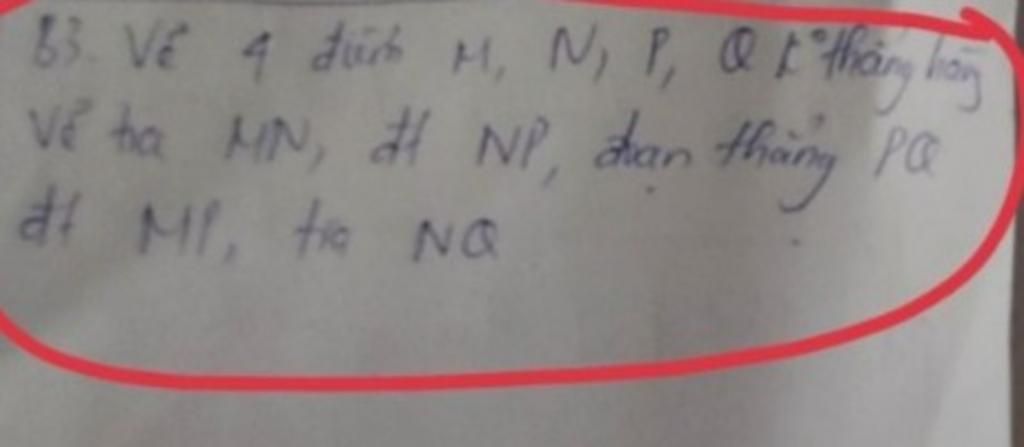 B3. Vẽ 4 đỉnh M, N, P, Q k° thẳng hàng
Vẽ tia MN, đt NP, đoạn thẳng PQ
đt MP, tia NQ